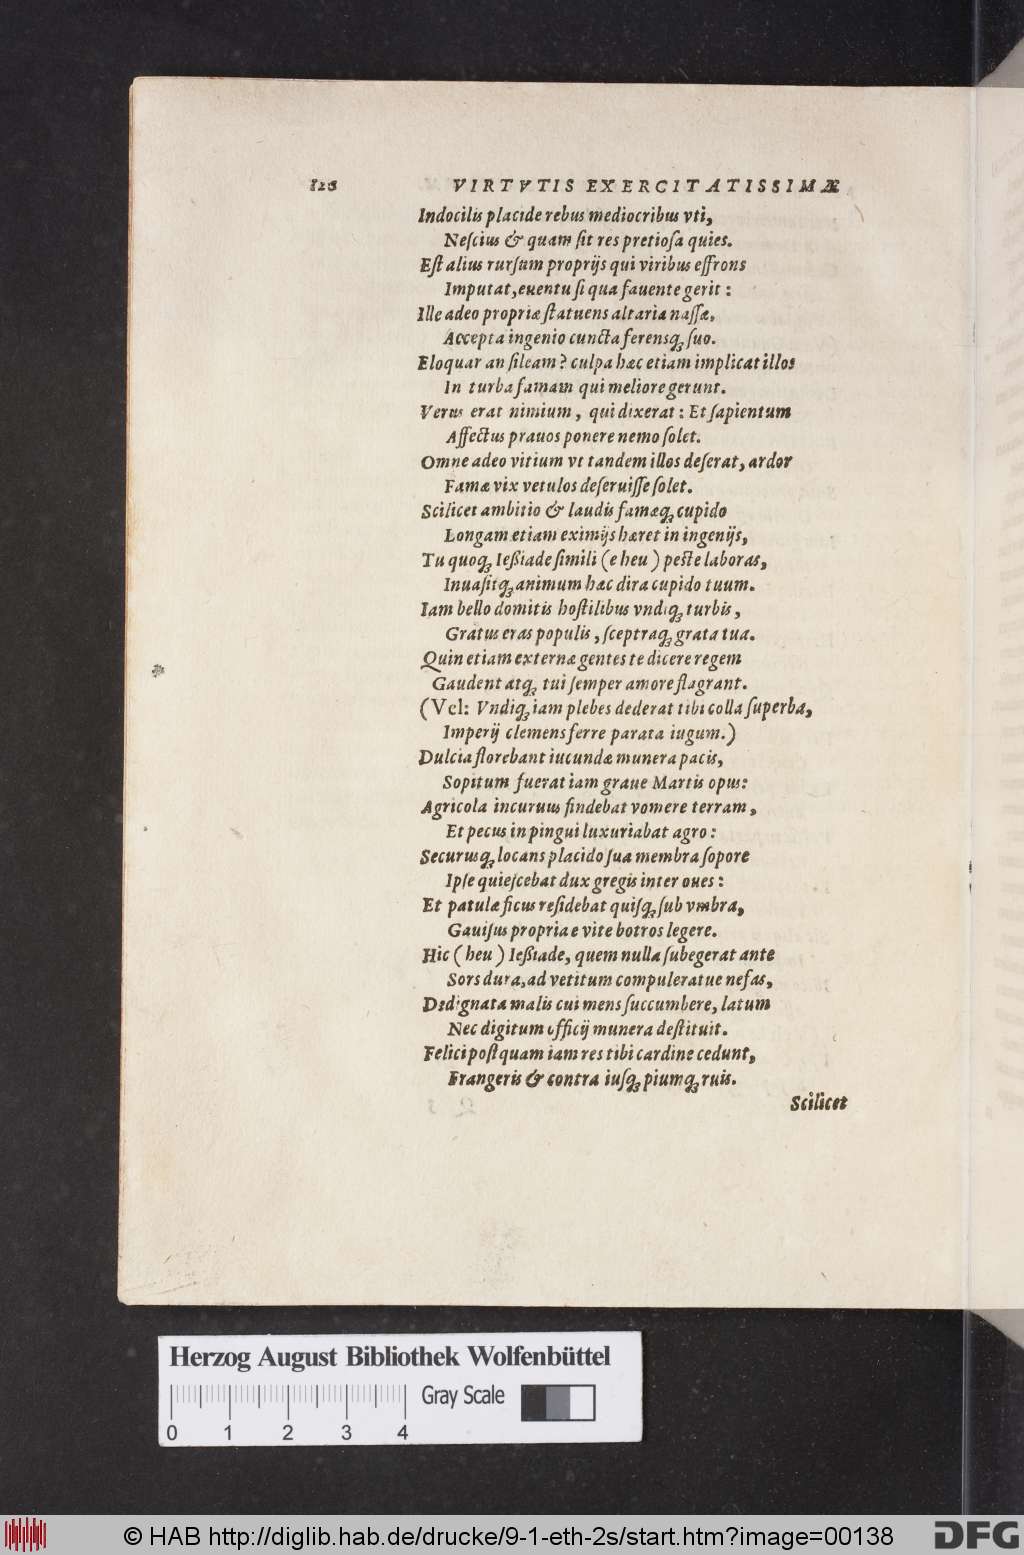 126 VIRTVTIS EXERCITATISSIMÆ
Indocilis placide rebus mediocribus vti,
Neſcius & quam ſit res pretioſa quies.
Eſt alius rurſum proprijs qui viribus effrons
Imputat, euentu ſi qua fauente gerit:
Ille adeo propriæ ſtatuens altaria naſſæ,
Accepta ingenio cuncta ferensqꝫ ſuo.
Eloquar an ſileam? culpa hæc etiam implicat illos
In turba famam qui meliore gerunt.
Verus erat nimium, qui dixerat: Et ſapientum
Affectus prauos ponere nemo ſolet.
Omne adeo vitium vt tandem illos deſerat, ardor
Famæ vix vetulos deſeruiſſe ſolet.
Scilicet ambitio & laudis famæqꝫ cupido
Longam etiam eximijs hæret in ingenijs,
Tu quoqꝫ Ießiade ſimili (eheu) peſte laboras,
Inuaſitqꝫ animum hæc dira cupido tuum.
Iam bello domitis hoſtilibus vndiqꝫ turbis,
Gratus eras populis, ſceptraqꝫ grata tua.
Quin etiam externæ gentes te dicere regem
Gaudent atqꝫ tui ſemper amore flagrant.
(Vel: Vndiqꝫ iam plebes dederat tibi colla ſuperba,
Imperij clemens ferre parata iugum.)
Dulcia florebant iucundæ munera pacis,
Sopitum fuerat iam graue Martis opus:
Agricola incuruus findebat vomere terram,
Et pecus in pingui luxuriabat agro:
Securusqꝫ locans placido ſua membra ſopore
Ipſe quieſcebat dux gregis inter oues:
Et patulæ ficus reſidebat quiſqꝫ ſub vmbra,
Gauiſus propria e vite botros legere.
Hic (heu) Ießiade, quem nulla ſubegerat ante
Sors dura, ad vetitum compuleratue nefas,
Dedignata malis cui mens ſuccumbere, latum
Nec digitum officij munera deſtituit.
Felici poſtquam iam res tibi cardine cedunt,
Frangeris & contra iuſqꝫ piumqꝫ ruis.
Scilicet
Herzog August Bibliothek Wolfenbüttel
Gray Scale
0 1 2 3 4
© HAB http://diglib.hab.de/drucke/9-1-eth-2s/start.htm?image=00138
DFG